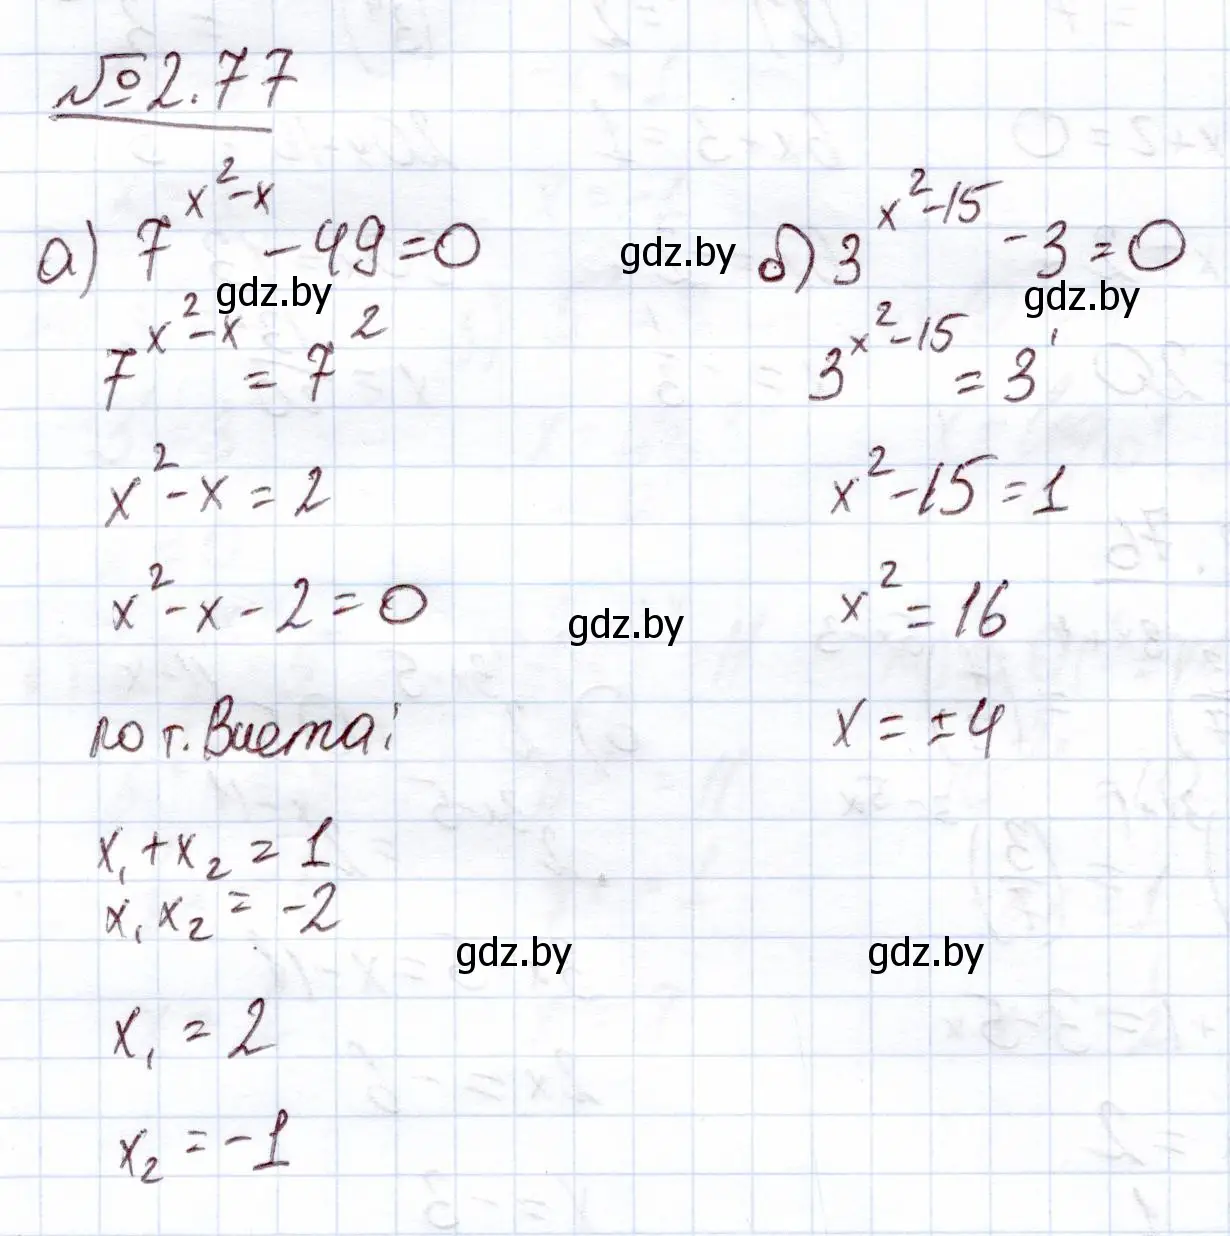 №2.77
а) 7^(x²-x) - 49 = 0
7^(x²-x) = 7²
x² - x = 2
x² - x - 2 = 0
по т. Виета:
x₁ + x₂ = 1
x₁ x₂ = -2
x₁ = 2
x₂ = -1
б) 3^(x²-15) - 3 = 0
3^(x²-15) = 3¹
x² - 15 = 1
x² = 16
x = ±4
gdz.by
gdz.by
gdz.by
gdz.by
gdz.by
gdz.by